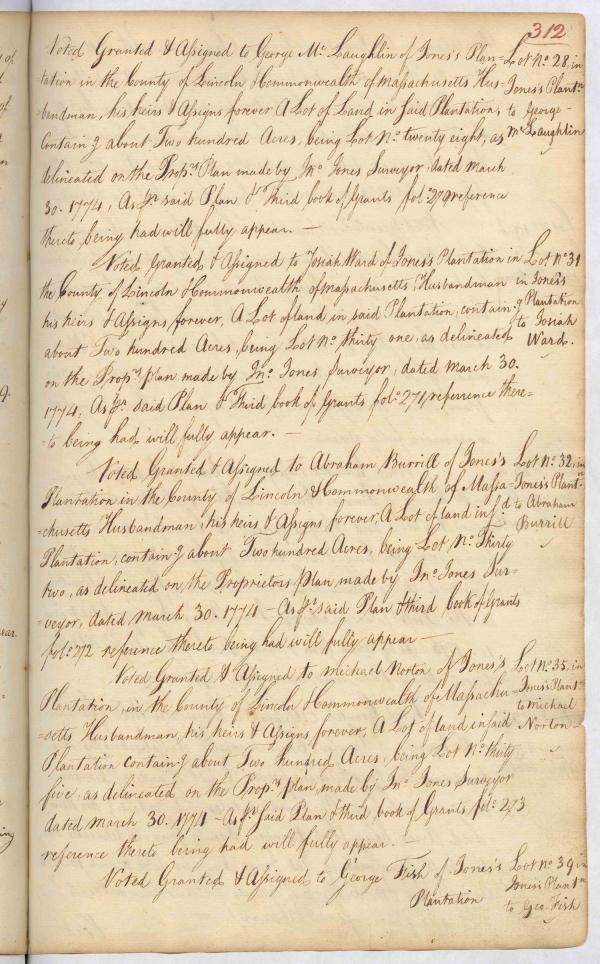 312
Voted Granted & Assigned to George Mc Laughlin of Jones's Plan=
tation in the County of Lincoln & Commonwealth of Massachusetts Hus=
bandman, his heirs & Assigns forever A Lot of Land in said Plantation,
Contain.g about Two hundred Acres, being Lot No. twenty eight, as
delineated on the Prop.rs Plan made by Jno. Jones Surveyor, dated March
30. 1774, As pr. said Plan & Third book of Grants fol.o 270 reference
thereto being had will fully appear. —
Lot No. 28, in
Jones's Plantn.
to George
Mc Laughlin
Voted Granted & Assigned to Josiah Ward of Jones's Plantation in
the County of Lincoln & Commonwealth of Massachusetts, Husbandman
his heirs & Assigns, forever, A Lot of land in said Plantation, contain.g
about Two hundred Acres, being Lot No. thirty one, as delineated
on the Prop.rs plan made by Jno. Jones Surveyor, dated March 30.
1774, As pr. said Plan & Third book of Grants fol.o 271, reference there=
=to being had will fully appear. —
Lot No. 31
in Jones's
Plantation
to Josiah
Ward.
Voted Granted & Assigned to Abraham Burrill of Jones's
Plantation in the County of Lincoln & Commonwealth of Massa=
=chusetts Husbandman, his heirs & Assigns forever, A Lot of land in s.d
Plantation, contain.g about Two hundred Acres, being Lot No. Thirty
two, as delineated on the Proprietors plan, made by Jno. Jones Sur=
=veyor, dated March 30. 1774 — As pr. said Plan & third book of Grants
fol.o 272 reference thereto being had will fully appear —
Lot No. 32, in
Jones's Plantn.
to Abraham
Burrill
Voted Granted & Assigned to Michael Norton of Jones's
Plantation, in the County of Lincoln & Commonwealth of Massachu=
=setts Husbandman, his heirs & Assigns, forever, A Lot of land in said
Plantation contain.g about Two hundred Acres, being Lot No. thirty
five, as delineated on the Prop.rs plan, made by Jno. Jones Surveyor
dated March 30. 1774 — As pr. said Plan & third book of Grants fol.o 273
reference thereto being had will fully appear. —
Lot No. 35, in
Jones's Plant
to Michael
Norton
Voted Granted & Assigned to George Fish of Jones's
Plantation
Lot No. 39 in
Jones's Plantn.
to Geo. Fish